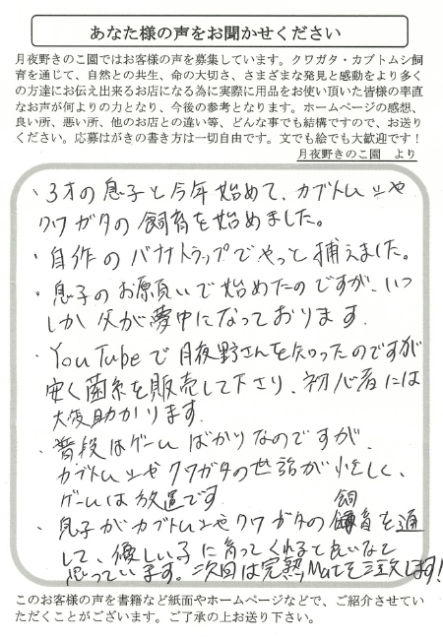 あなた様の声をお聞かせください
月夜野きのこ園ではお客様の声を募集しています。クワガタ・カブトムシ飼
育を通じて、自然との共生、命の大切さ、さまざまな発見と感動をより多く
の方達にお伝え出来るお店になる為に実際に用品をお使い頂いた皆様の率直
なお声が何よりの力となり、今後の参考となります。ホームページの感想、
良い所、悪い所、他のお店との違い等、どんな事でも結構ですので、お送り
ください。応募はがきの書き方は一切自由です。文でも絵でも大歓迎です！
月夜野きのこ園　より
・3才の息子と今年始めて、カブトムシや
クワガタの飼育を始めました。
・自作のバナナトラップでやっと捕えました。
・息子のお願いで始めたのですが、いつ
しか父が夢中になっております。
・YouTubeで月夜野さんを知ったのですが
安く菌糸を販売して下さり、初心者には
大変助かります。
・普段はゲームばかりなのですが、
カブトムシやクワガタの世話が忙しく、
ゲームは放置です。
・息子がカブトムシやクワガタの飼育を通
して、優しい子に育ってくれると良いなと
思っています。次回は完熟Matを注文します!
このお客様の声を書籍など紙面やホームページなどで、ご紹介させてい
ただくことがございます。ご了承の上お送り下さい。